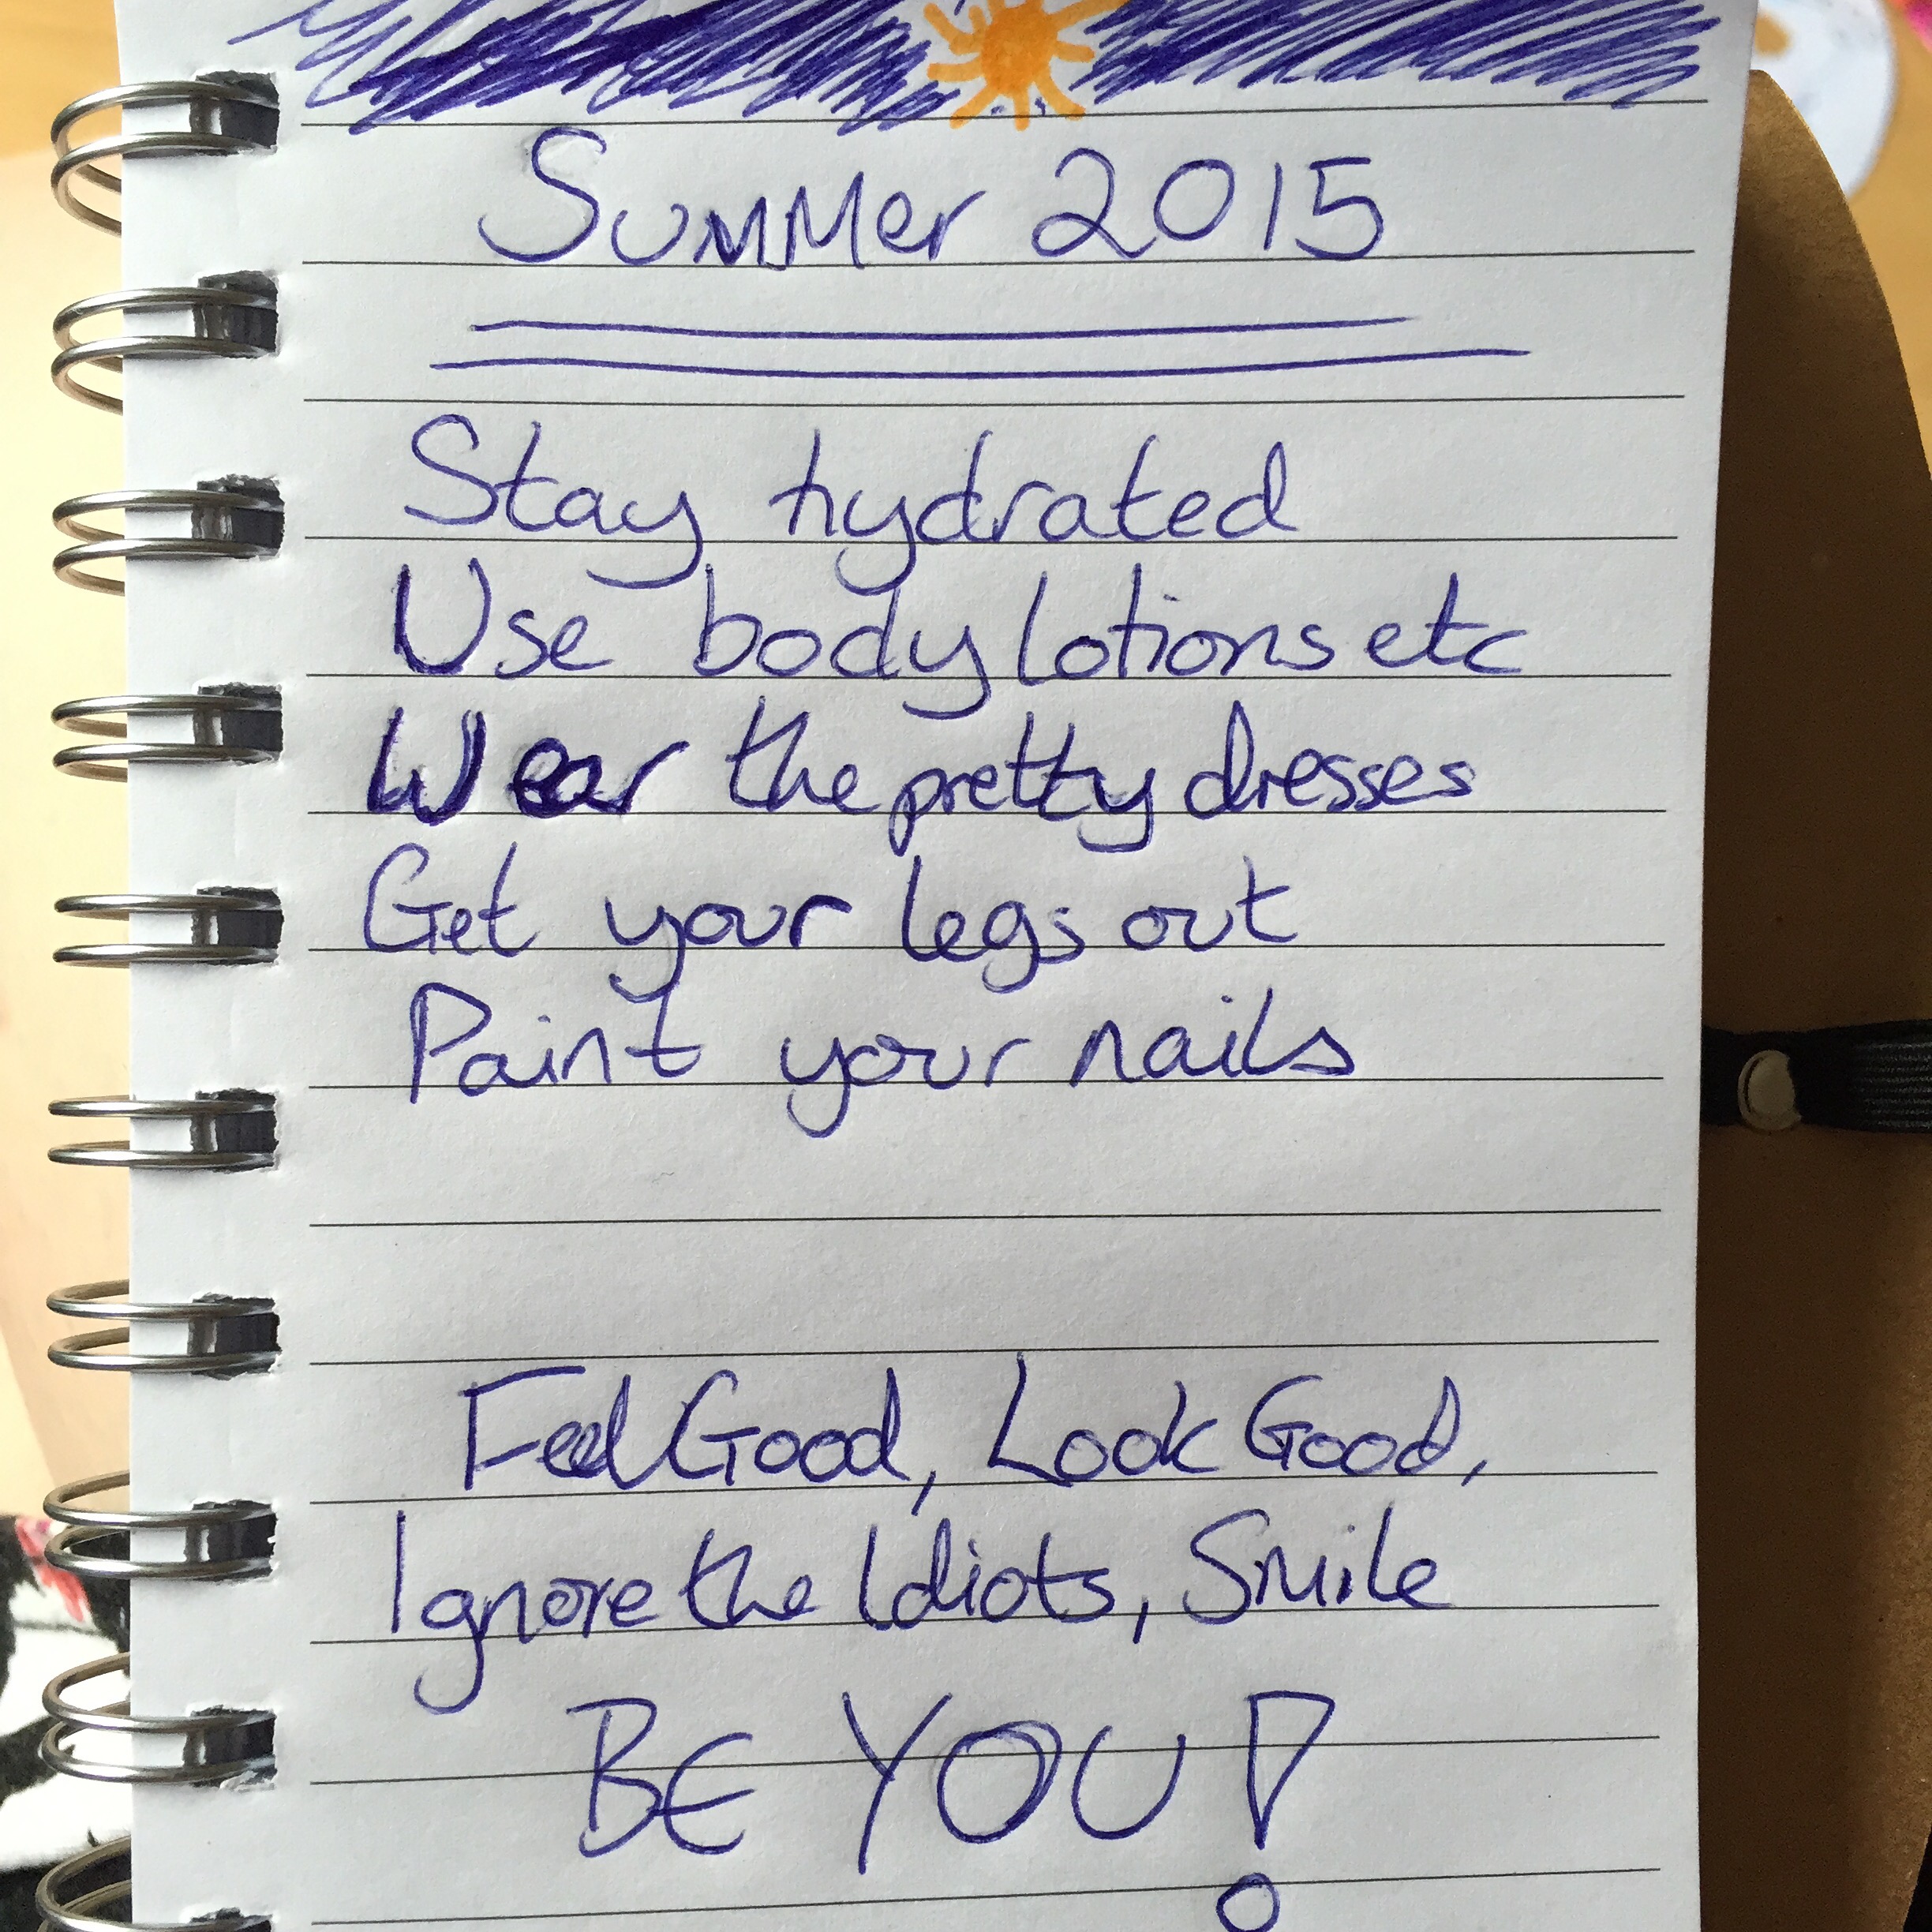 Summer 2015
Stay hydrated
Use body lotions etc
Wear the pretty dresses
Get your legs out
Paint your nails
Feel Good, Look Good,
Ignore the Idiots, Smile
BE YOU!